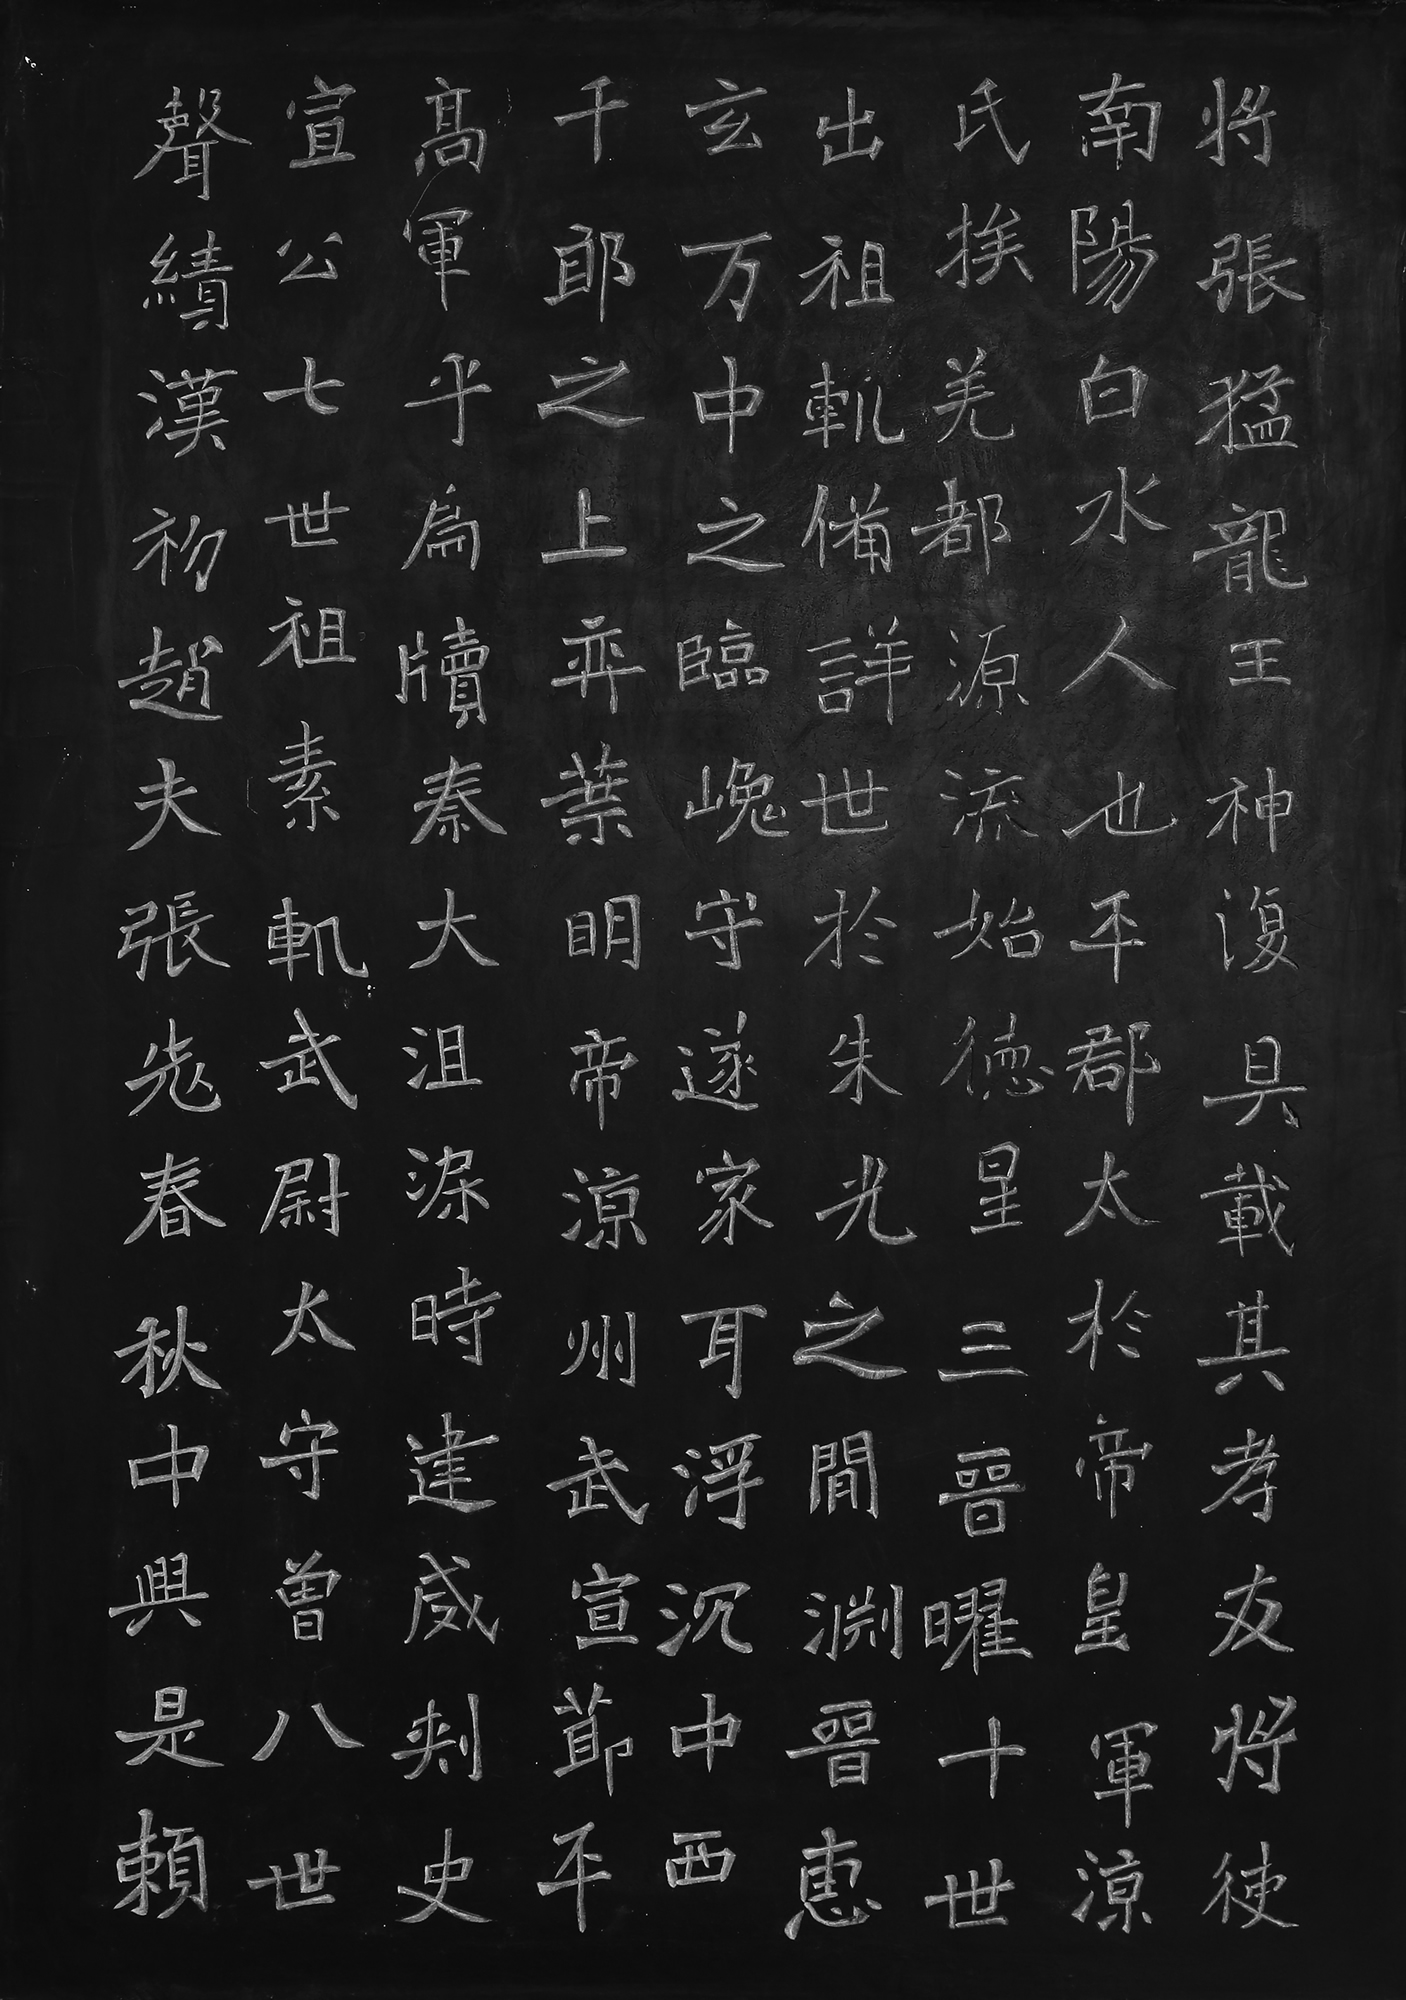 将張猛龍王神復具載其孝友将使
南陽白水人也平郡太於帝皇軍涼
氏挨羌都源流始德星三晉曜十世
出祖軌備詳世於朱光之間渊晉惠
玄万中之臨峗守遂家耳浮沉中西
千郎之上弈葉明帝涼州武宣莭平
髙軍乎為牘秦大沮渠時建威刾史
宣公七世祖素軌武尉太守曽八世
聲績漢初趙夫張老春秋中興是賴